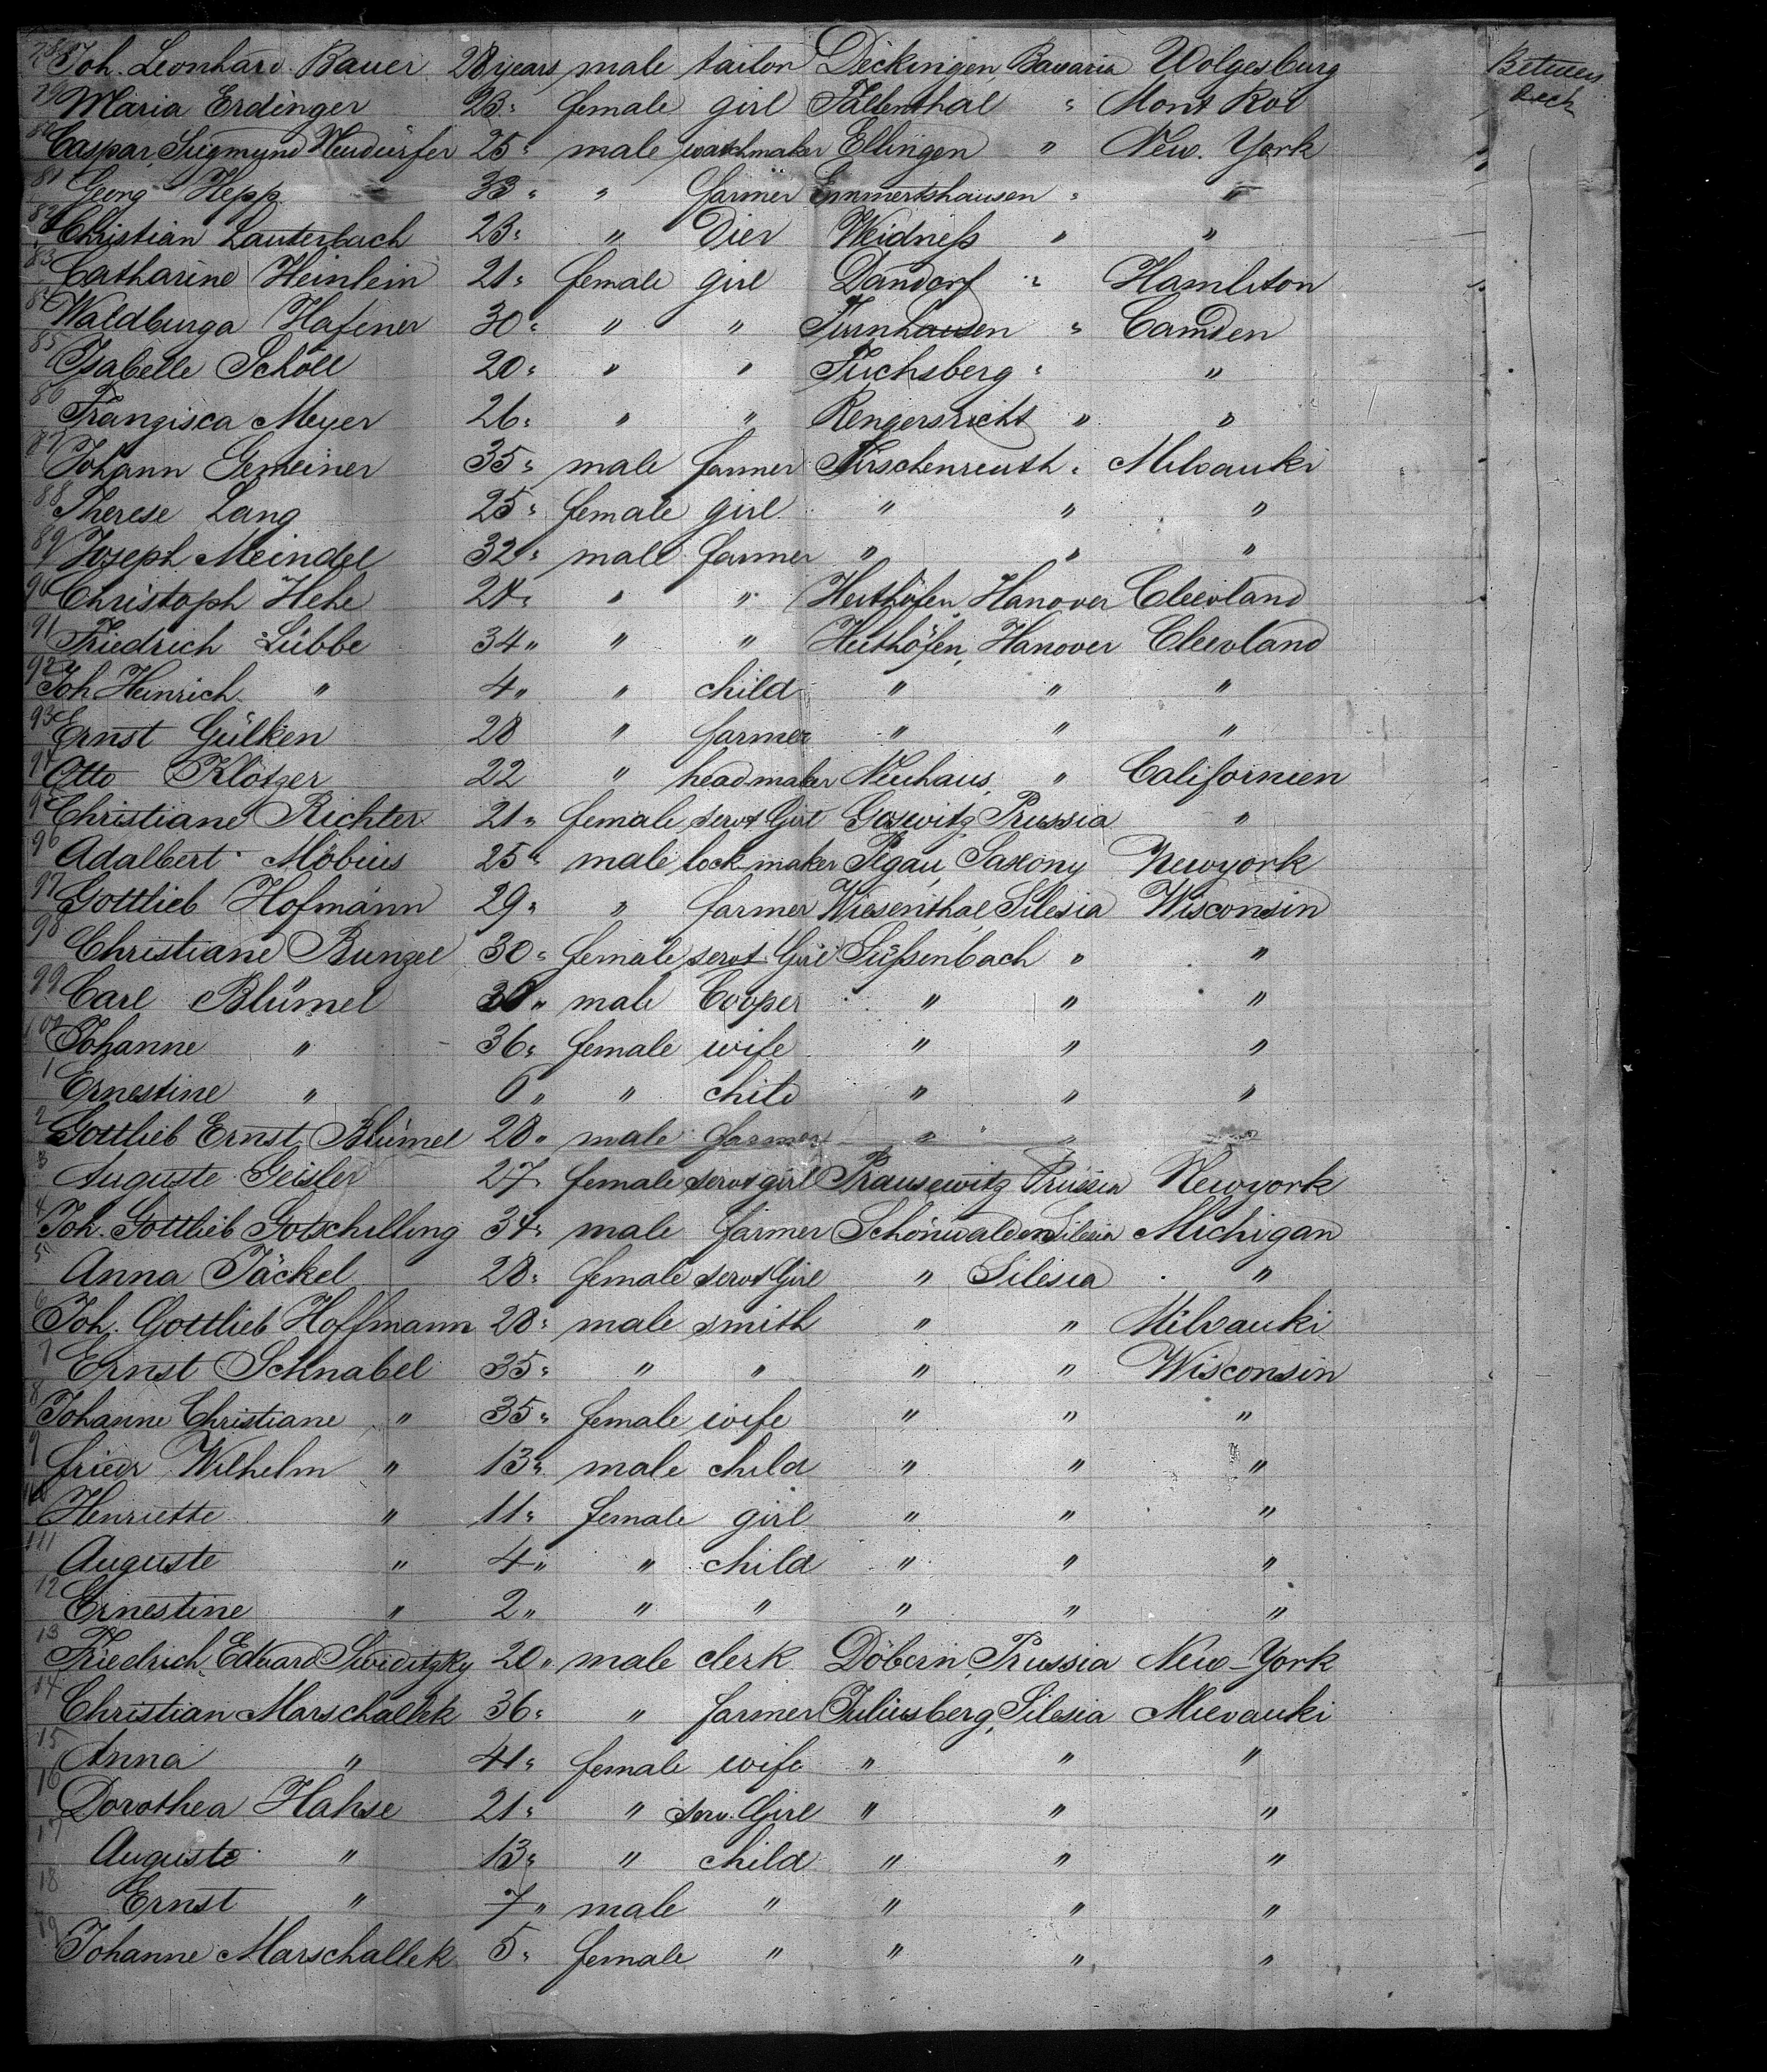 78 Joh. Leonhard Bauer 28 years male tailor Deckingen, Bavaria Wolgesburg Between
79 Maria Erdinger 23 " female girl Tallenthal " Mont Roi Deck
80 Caspar Siegmund Neudürfer 25 " male watchmaker Ellingen " New. York "
81 Georg Hepp 33 " " farmer Emmertshausen " "
82 Christian Lauterbach 23 " " Dier Weidneß " "
83 Catharine Heinlein 21 " female girl Dandorf " Hamilton
84 Waldburga Hafener 30 " " " Turnhausen " Camden
85 Isabelle Schöll 20 " " " Fuchsberg " "
86 Frangisca Meyer 26 " " " Rengersricht " "
87 Johann Gemeiner 35 " male farmer Tirschenreuth " Milvauki
88 Therese Lang 25 " female girl " " "
89 Joseph Meindel 32 " male farmer " " "
90 Christoph Hehe 28 " " " Heithöfen, Hanover Cleevland
91 Friedrich Lübbe 34 " " " Heithöfen, Hanover Cleevland
92 Joh Heinrich " 4 " " child " " "
93 Ernst Gülken 28 " farmer " " "
94 Otto Klötzer 22 " headmaker Neuhaus, " Californien
95 Christiane Richter 21 " female servt Girl Gosewitz Prussia "
96 Adalbert Möbius 25 " male lock maker Pegau, Saxony Newyork
97 Gottlieb Hofmann 29 " " farmer Wiesenthal Silesia Wisconsin
98 Christiane Bunzel 30 " female servt Girl Süßenbach " "
99 Carl Blümel 30 " male Cooper " " "
100 Johanne " 36 " female wife " " "
1 Ernestine " 6 " " child " " "
2 Gottlieb Ernst Blümel 28 " male farmer " " "
3 Auguste Geisler 27 " female servt girl Prausewitz Prussia Newyork
4 Joh. Gottlieb Gotschilling 34 " male farmer Schönwalden Silesia Michigan
5 Anna Jäckel 28 " female servt Girl " Silesia "
6 Joh. Gottlieb Hoffmann 28 " male smith " " Milvauki
7 Ernst Schnabel 35 " " " " " Wisconsin
8 Johanne Christiane " 35 " female wife " " "
9 Friedr Wilhelm " 13 " male child " " "
10 Henriette " 11 " female girl " " "
111 Auguste " 4 " " child " " "
12 Ernestine " 2 " " " " " "
13 Friedrich Edward Siwiditzky 20 " male clerk Döbern, Prussia New-York
14 Christian Marschallek 36 " " farmer Juliusberg, Silesia Milvauki
15 Anna " 41 " female wife " " "
16 Dorothea Hahse 21 " " serv. Girl " " "
17 Auguste " 13 " " child " " "
18 Ernst " 7 " male " " " "
19 Johanne Marschallek 5 " female " " " "